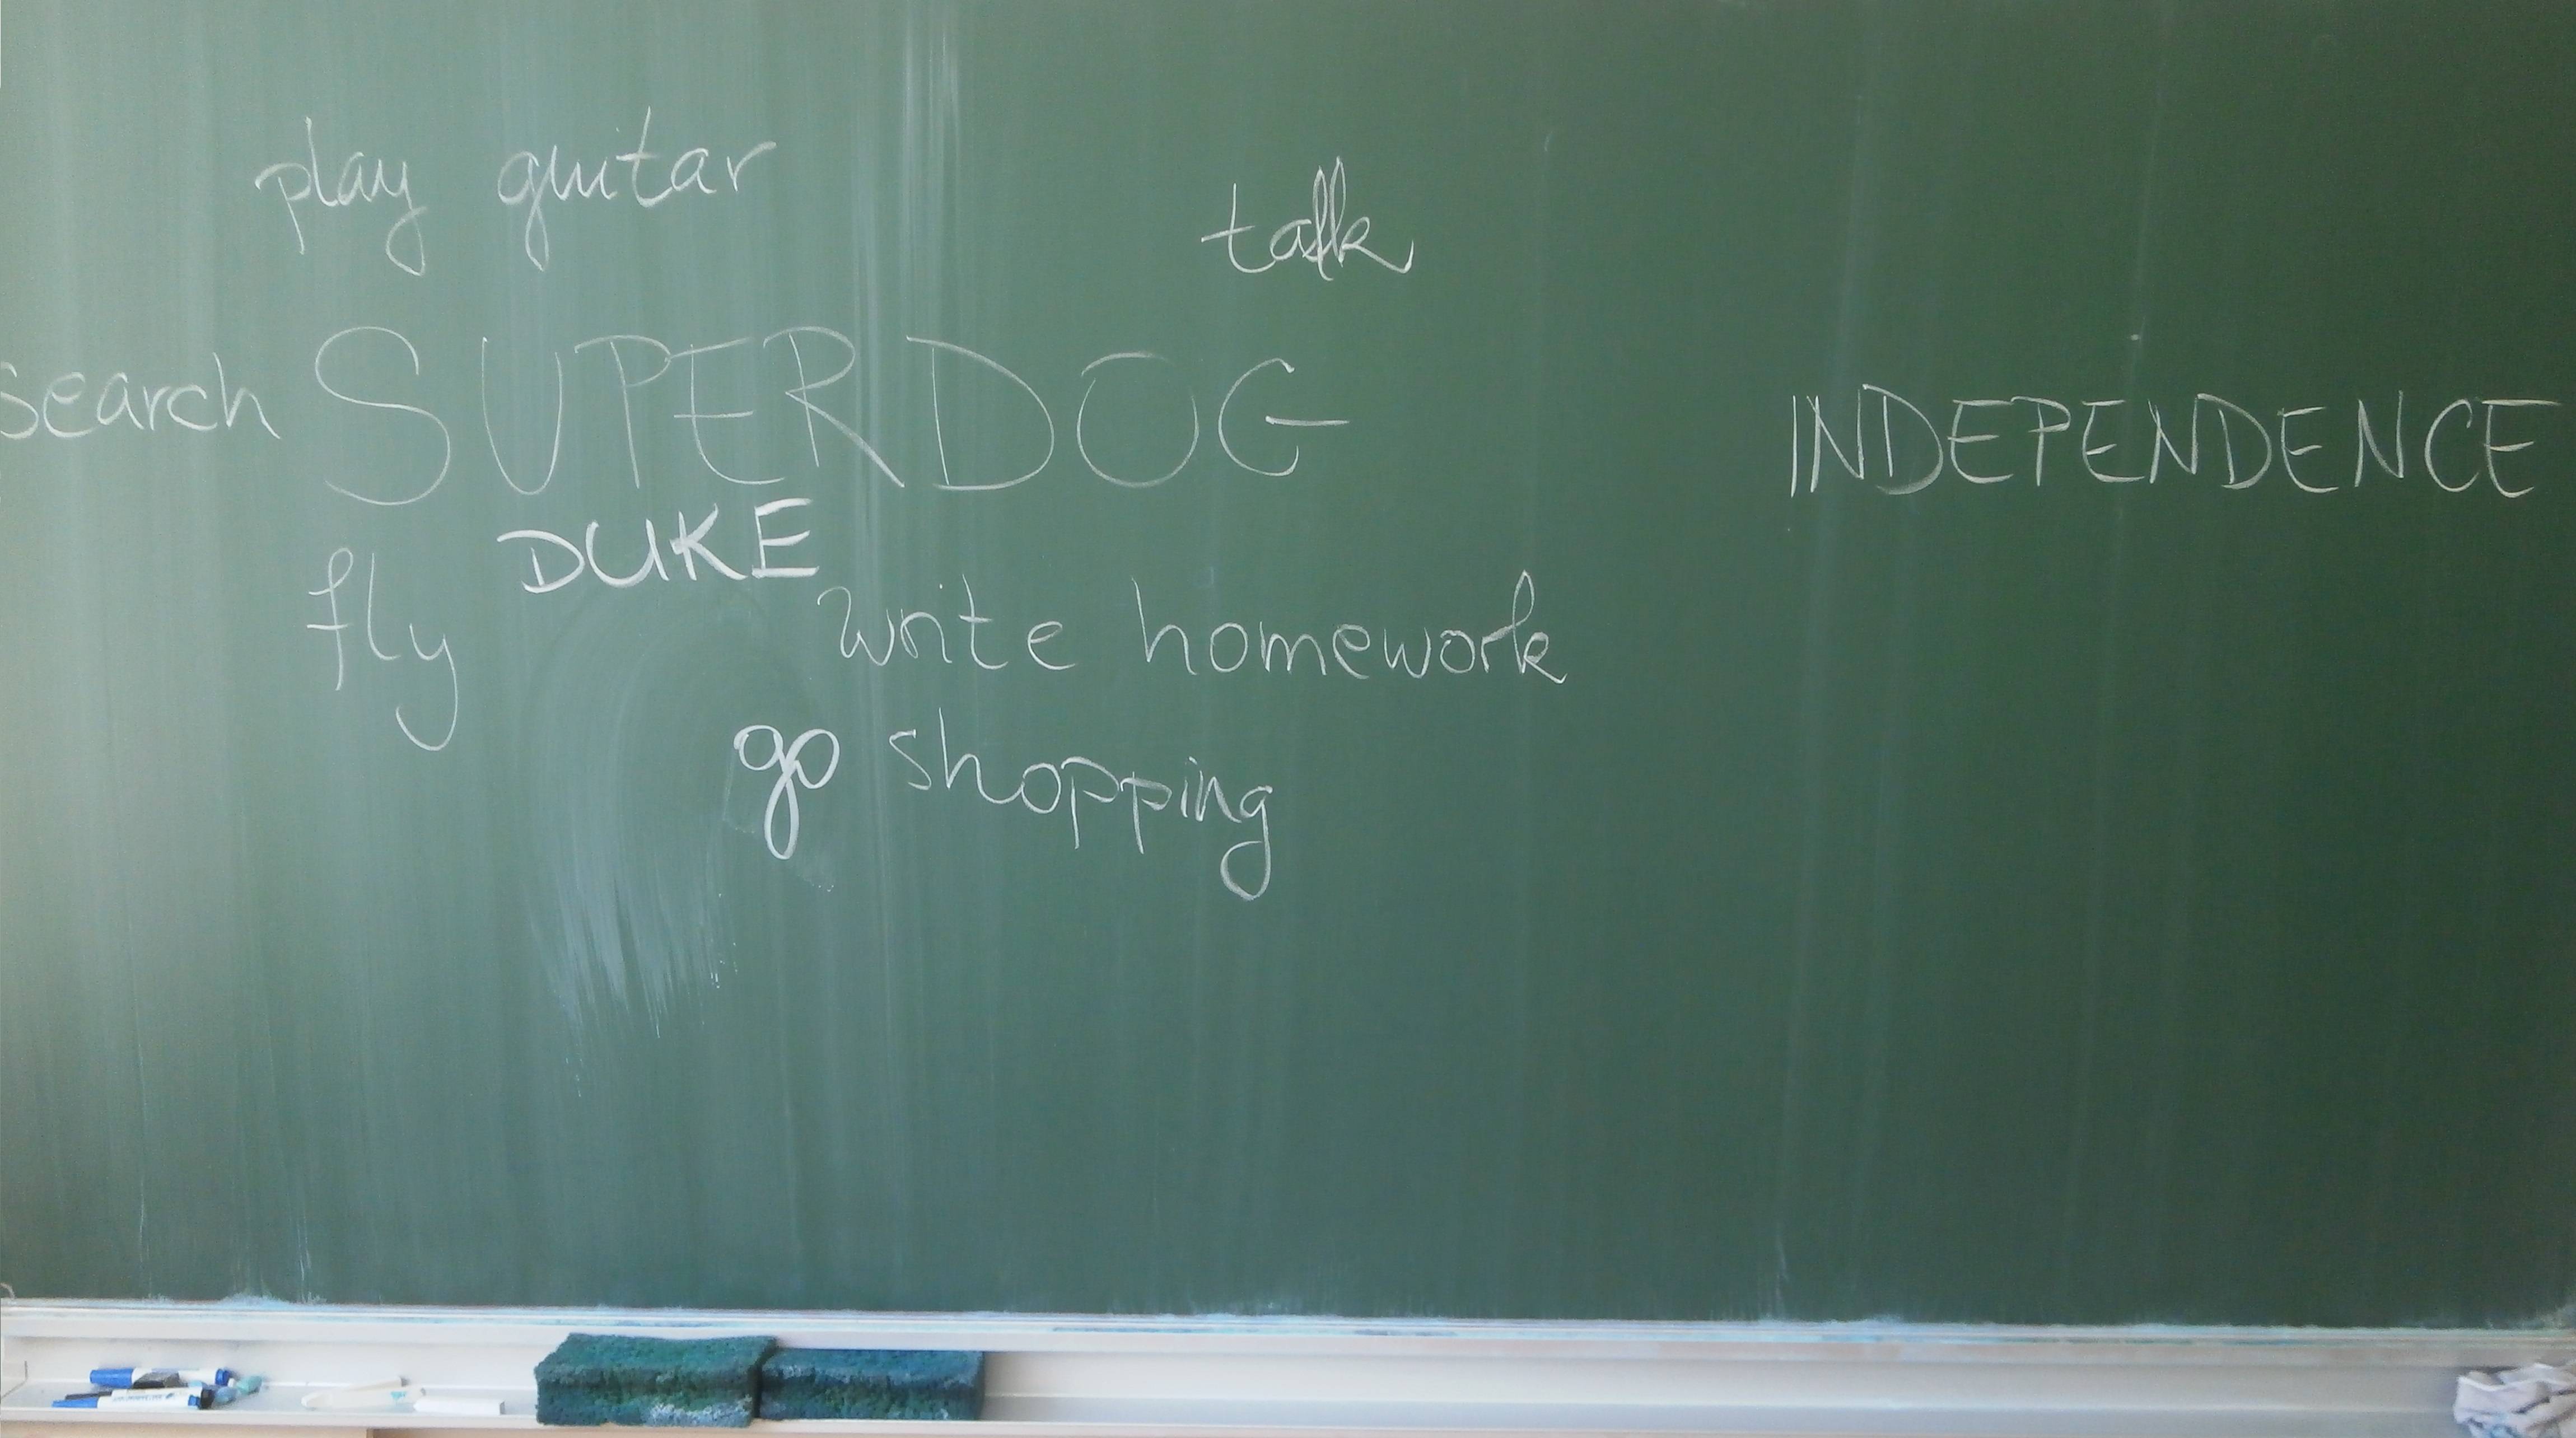 play guitar
talk
search SUPERDOG
INDEPENDENCE
DUKE
fly
write homework
go shopping